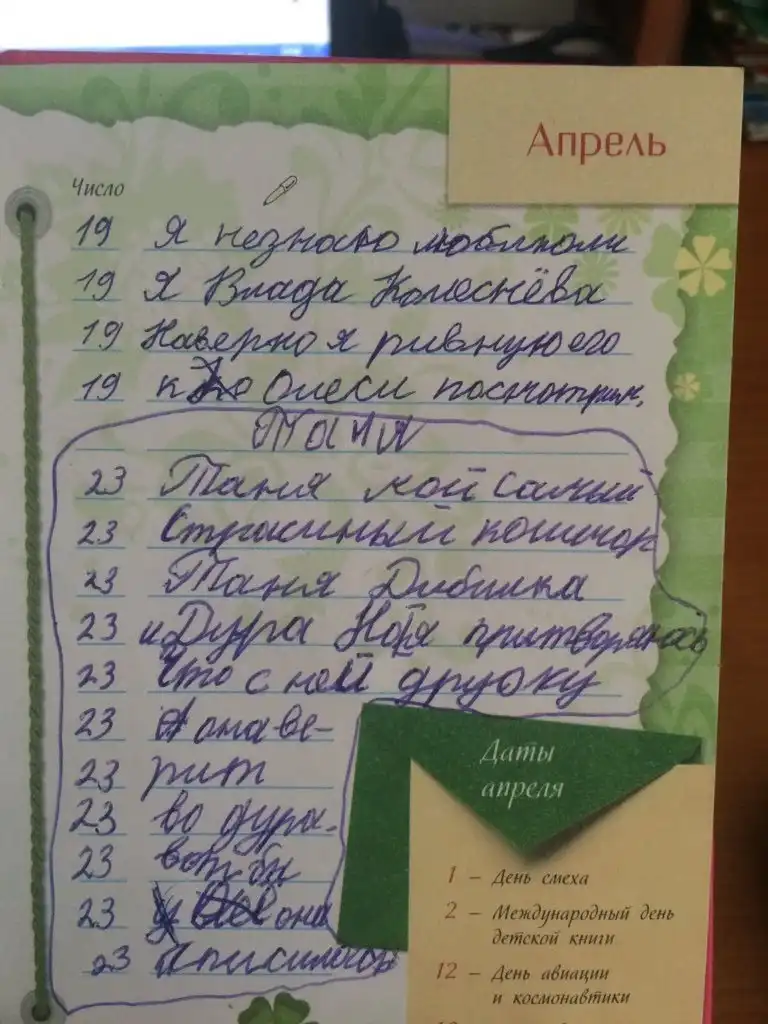 Апрель
Число
19 Я незнаю люблюли
19 Я Влада Колеснёва
19 Наверно я ривную его
19 к Олеси посмотрим,
Таня
23 Таня мой самый
23 Страшный кошмар
23 Таня Дибилка
23 и Дура Но я притворяюсь
23 Что с ней дружу
23 А она ве-
23 рит
23 во дура.
23 вот бы
23 она
23
Даты
апреля
1 – День смеха
2 – Международный день
детской книги
12 – День авиации
и космонавтики